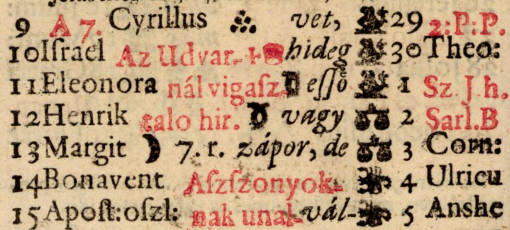 9 A 7. Cyrillus vet, 29 2:P:P.
10 Iſrael Az Udvar- hideg 30 Theo:
11 Eleonora nál vigaſz- eſſő 1 Sz. J. h.
12 Henrik talo hir. vagy 2 Sarl.B
13 Margit 7. r. zápor, de 3 Corn:
14 Bonavent Aſzſzonyok- 4 Ulricu
15 Apoſt:oſzl: nak unal- vál- 5 Anshe